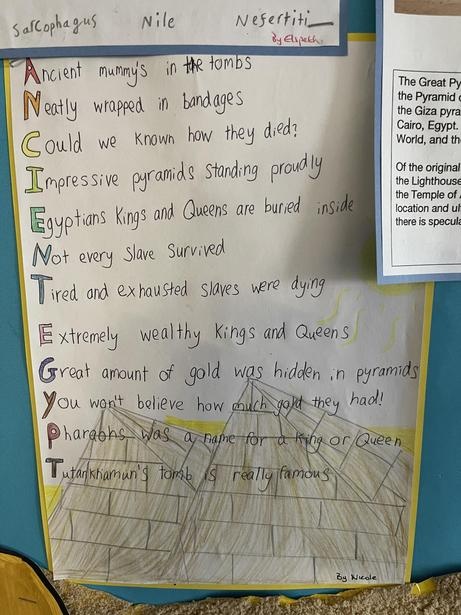 Sarcophagus Nile Nefertiti
By Elspeth
Ancient mummy's in the tombs
Neatly wrapped in bandages
Could we known how they died?
Impressive pyramids standing proudly
Egyptians Kings and Queens are buried inside
Not every slave survived
Tired and exhausted slaves were dying
Extremely wealthy Kings and Queens
Great amount of gold was hidden in pyramids
You won't believe how much gold they had!
Pharaohs was a name for a King or Queen
Tutankhamun's tomb is really famous
By Nicole
The Great Py
the Pyramid
the Giza pyra
Cairo, Egypt.
World, and th
Of the original
the Lighthouse
the Temple of
location and ul
there is specula